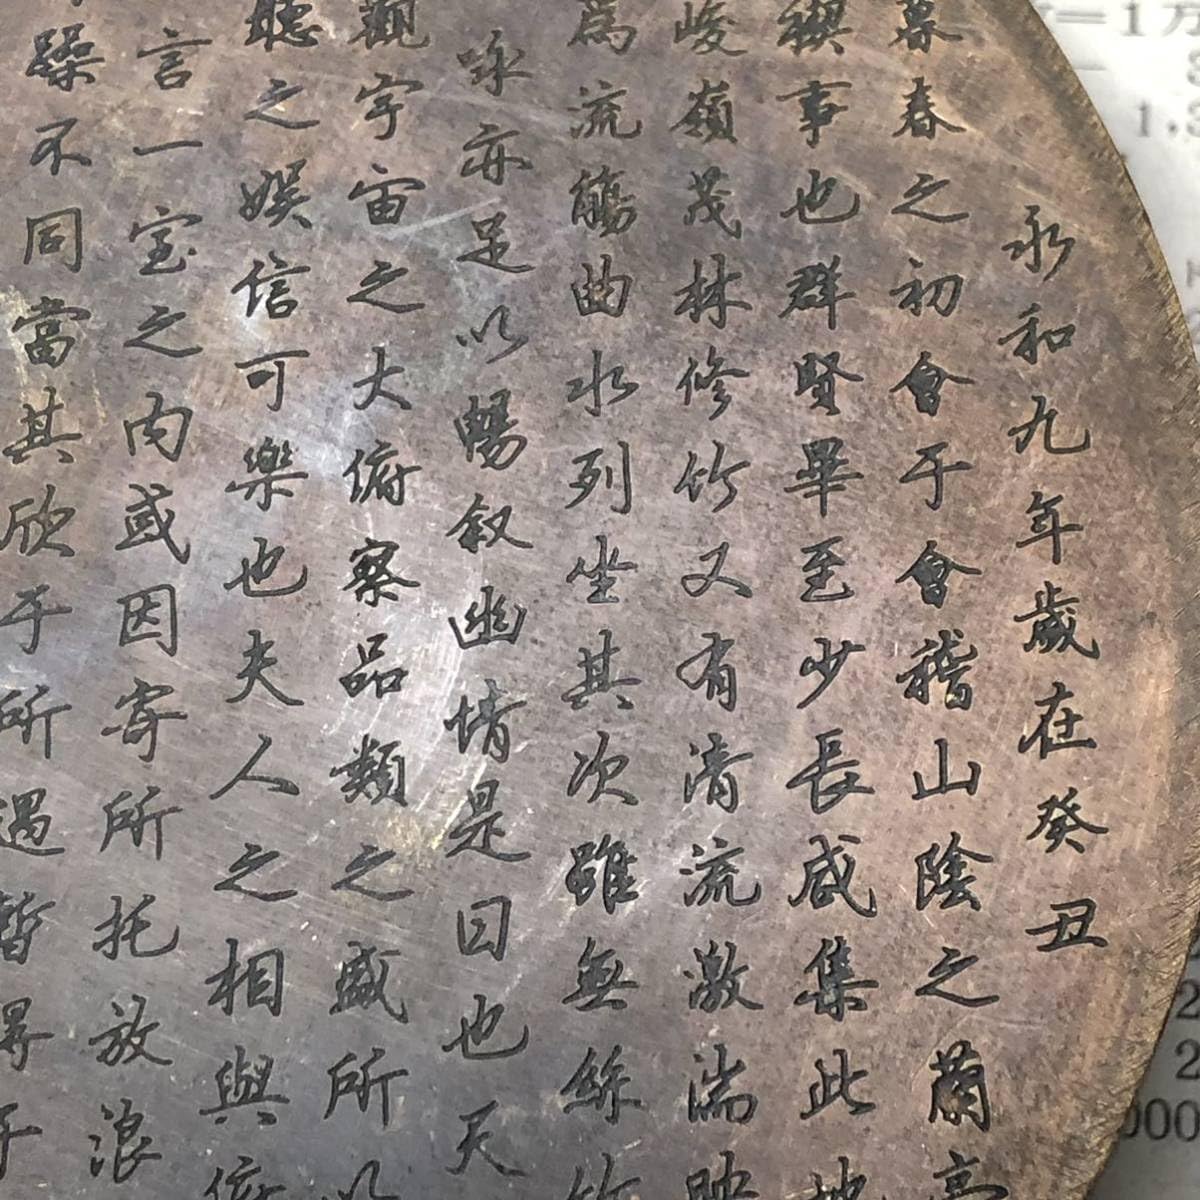 永和九年歲在癸丑
暮春之初會于會稽山陰之蘭亭
禊事也群賢畢至少長咸集此地
峻嶺茂林修竹又有清流激湍映
為流觴曲水列坐其次雖無絲竹
詠亦足以暢叙幽情是日也天
觀宇宙之大俯察品類之盛所以
聽之娛信可樂也夫人之相與俯
言一室之内或因寄所托放浪
躁不同當其欣于所遇暫得于
=1万
1,3
2
2
000